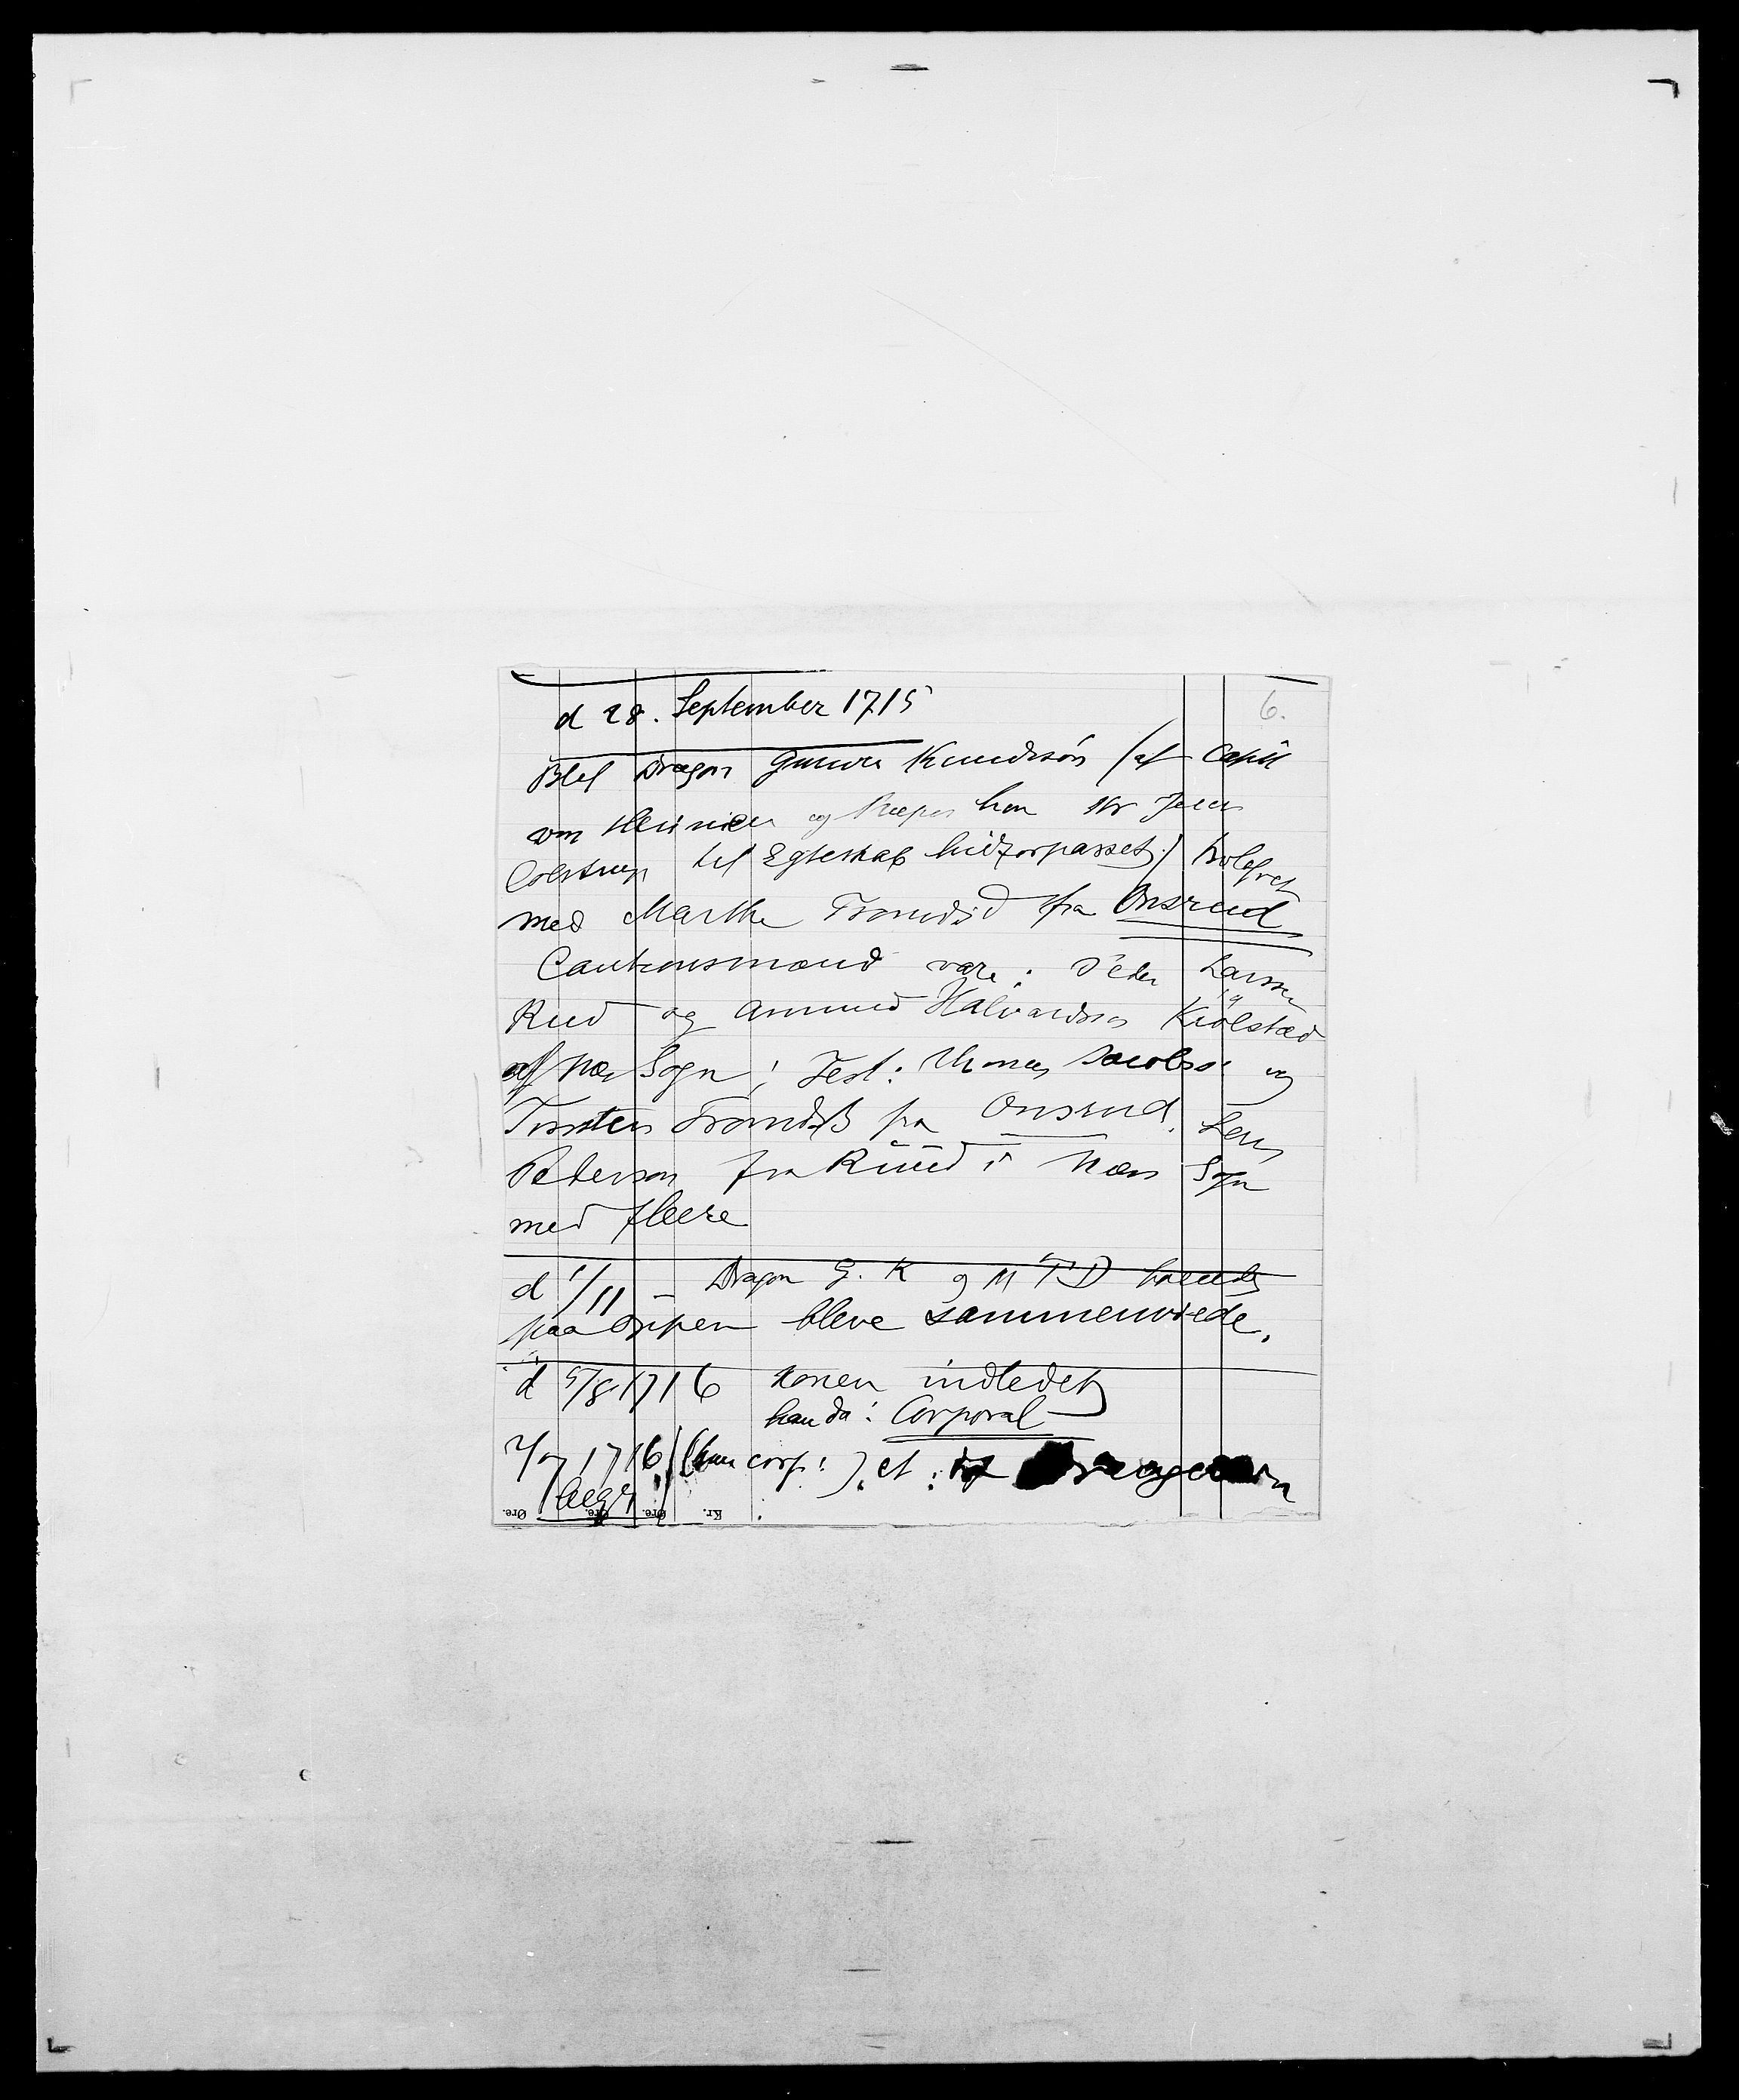 6.
d 28. September 1715
Blef Dragon Gunder Knudsön (af Capit
von og her Hr Jens
Colstrup til Egteskab hidforpasset) trolofvet
med Marthe Trondsd fra Onsrud
Cautionsmænd vare: Peder Larssen
Rud og Ammund Halvardsen Kiölstad
af Næs Sogn; Test: Thomas Jacobss. og
Torsten Trondsß fra Onsrud. Lars
Pederson fra Ruud i Næs Sogn
med fleere
d 1/11 – Dragon G. K og M T D
paa bleve sammenviede.
d 5/8 1716 Konen indledet
han da: Corporal
1716 (han corp:). et:
Øre. Øre. Øre. Kr.